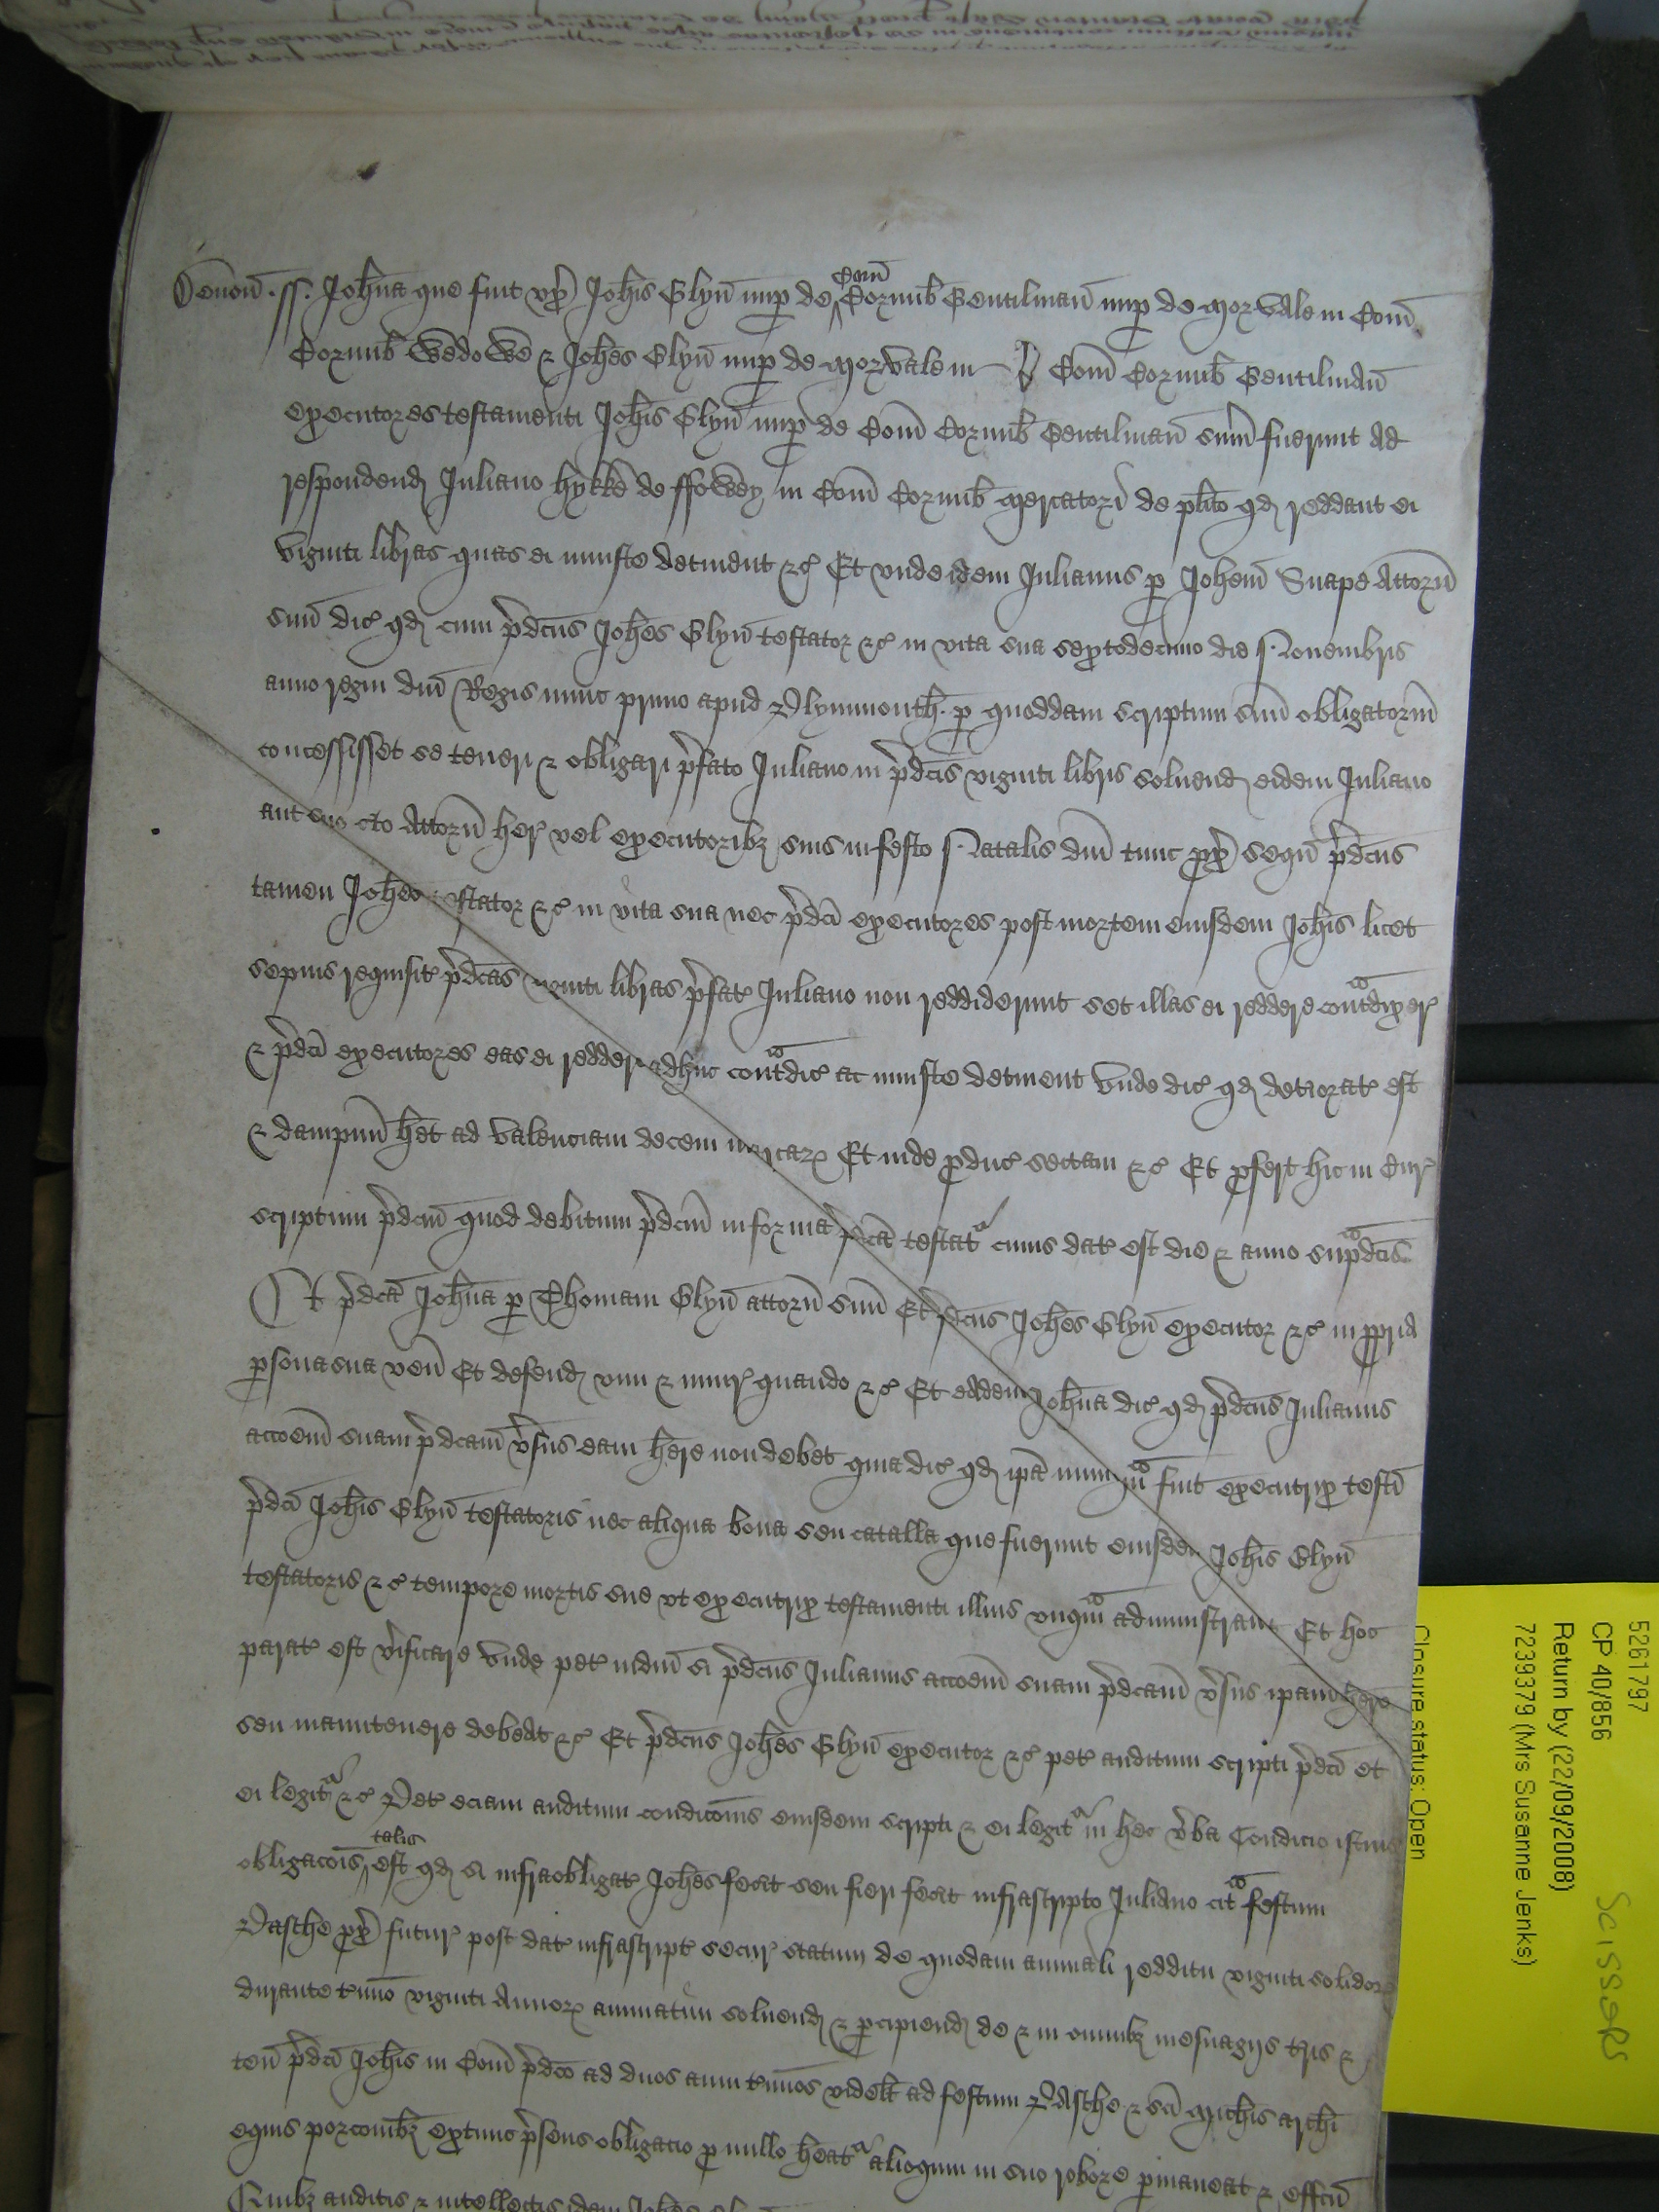 Deuon̄ . ss . Joh̄na que fuit vx̄ Joh̄is Glyn̄ nup̱ de Com̄ Cornub̄ Gentilman̄ nup̱ de Morvale in Com̄
Cornub̄ Wedowe ⁊ Joh̄es Glyn̄ nup̱ de Morvale in Com̄ Cornub̄ Gentilman̄
executores testamenti Joh̄is Glyn̄ nup̱ de Com̄ Cornub̄ Gentilman̄ sum̄ fuerunt ad
respondend̄ Juliano hykke de ffowey in Com̄ Cornub̄ Mercatori de pl̄ito qd̄ reddant ei
viginti libras quas ei iniuste detinent ⁊c̄ Et vnde idem Julianus p̱ Joh̄em Snape Attorn̄
suū dic̄ qd̄ cum p̄dc̄us Joh̄es Glyn̄ testator ⁊c̄ in vita sua septodecimo die Nouembris
anno regni dn̄i Regis nunc primo apud Plymmouth̄ . p̱ quoddam scriptum suū obligatoriū
concessisset se teneri ⁊ obligari p̄fato Juliano in p̄dc̄is viginti libris soluend̄ eidem Juliano
aut suo c̄to Attorn̄ her̄ vel executorib⁊ suis in festo Natalis dn̄i tunc px̄ seqū p̄dc̄us
tamen Joh̄es testator ⁊c̄ in vita sua nec p̄dc̄i executores post mortem eiusdem Joh̄is licet
sepius requisit̄ p̄dc̄as viginti libras p̄fat̄ Juliano non reddiderunt set illas ei reddere cont̄dixer̄
⁊ p̄dc̄i executores eas ei reddere adhuc cont̄dic̄ ac iniuste detinent vnde dic̄ qd̄ deteriorat̄ est
⁊ dampnū h̄et ad valenciam decem marcar̄ Et inde p̱duc̄ sectam ⁊c̄ Et p̱fert hic in Cur̄
scriptum p̄dc̄m̄ quod debitum p̄dc̄m̄ in forma p̄dc̄a testat̄ cuius dat̄ est die ⁊ anno sup̄dc̄is
Et p̄dc̄a Joh̄na p̱ Thomam Glyn̄ attorn̄ suū Et p̄dc̄us Joh̄es Glyn̄ executor ⁊c̄ in p̱pria
p̱sona sua ven̄ Et defend̄ vim ⁊ iniur̄ quando ⁊c̄ Et eadem Joh̄na dic̄ qd̄ p̄dc̄us Julianus
acc̄oem̄ suam p̄dc̄am̄ v̄sus eam h̄ere non debet quia dic̄ qd̄ ip̄a nunqm̄ fuit executrix test̄i
p̄dc̄i Joh̄is Glyn̄ testatoris nec aliqua bona seu catalla que fuerunt eiusdem Joh̄is Glyn̄
testatoris ⁊c̄ tempore mortis sue vt executrix testamenti illius vnqm̄ administrauit Et hoc
parat̄ est v̄ificare vnde pet̄ iudm̄ si p̄dc̄us Julianus acc̄oem̄ suam p̄dc̄am̄ v̄sus ip̄am h̄ere
seu manutenere debeat ⁊c̄ Et p̄dc̄us Joh̄es Glyn̄ executor ⁊c̄ pet̄ auditum scripti p̄dc̄i et
ei legit̄ ⁊c̄ Pet̄ eciam auditum condic̄onis eiusdem scripti ⁊ ei legit̄ in hec v̄ba Condicio istius
obligac̄ois talis est qd̄ si infraobligat̄ Joh̄es fecit seu fieri fecit infrascripto Juliano cit̄ festum
Pasche px̄ futur̄ post dat̄ infrascript̄ secur̄ statum de quodam annuali redditu viginti solidor̄
durante t̄mino viginti Annor̄ annuatim soluend̄ ⁊ p̱cipiend̄ de ⁊ in omnib⁊ mesuagijs t̄ris ⁊
ten̄ p̄dc̄i Joh̄is in Com̄ p̄dc̄o ad duos anni t̄minos videlt̄ ad festum Pasche ⁊ sc̄i Mich̄is arch̄i
equis porc̄oib⁊ extunc p̄sens obligacio p̱ nullo h̄eat̄ alioquin in suo robore p̱maneat ⁊ effc̄u
Quib⁊ auditis ⁊ intellectis idem Joh̄es
5261797
CP 40/856
Return by (22/09/2008)
7239379 (Mrs Susanne Jenks)
Closure status: Open
Scissors